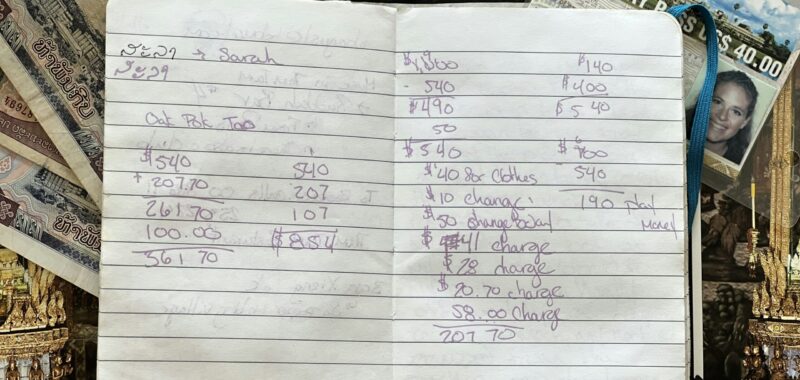 ສະລາ → Sarah
ສະລາ
Oak Pok Tao
$540
+ 207.70
261 70
100.00
561 70
540
207
107
$854
- 540
$490
50
$540
$40 for Clothes
$10 change
$50
$41 charge
$28 charge
$20.70 charge
58.00 Charge
207 70
$140
$400
$540
540
190 play
Money
US$ 40.00
ຫ້າພັນກີບ